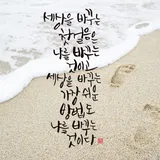 세상을 바꾸는
첫걸음은
나를 바꾸는
것이고
세상을 바꾸는
가장 쉬운
방법도
나를 바꾸는
것이다